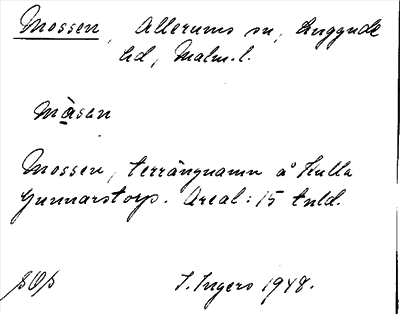 Mossen, Allerums sn, Luggude
hd, Malm.l.
måsan
Mossen, terrängnamn å Kulla
Gunnarstorp. Areal: 15 tnld.
I. Ingers 1948.